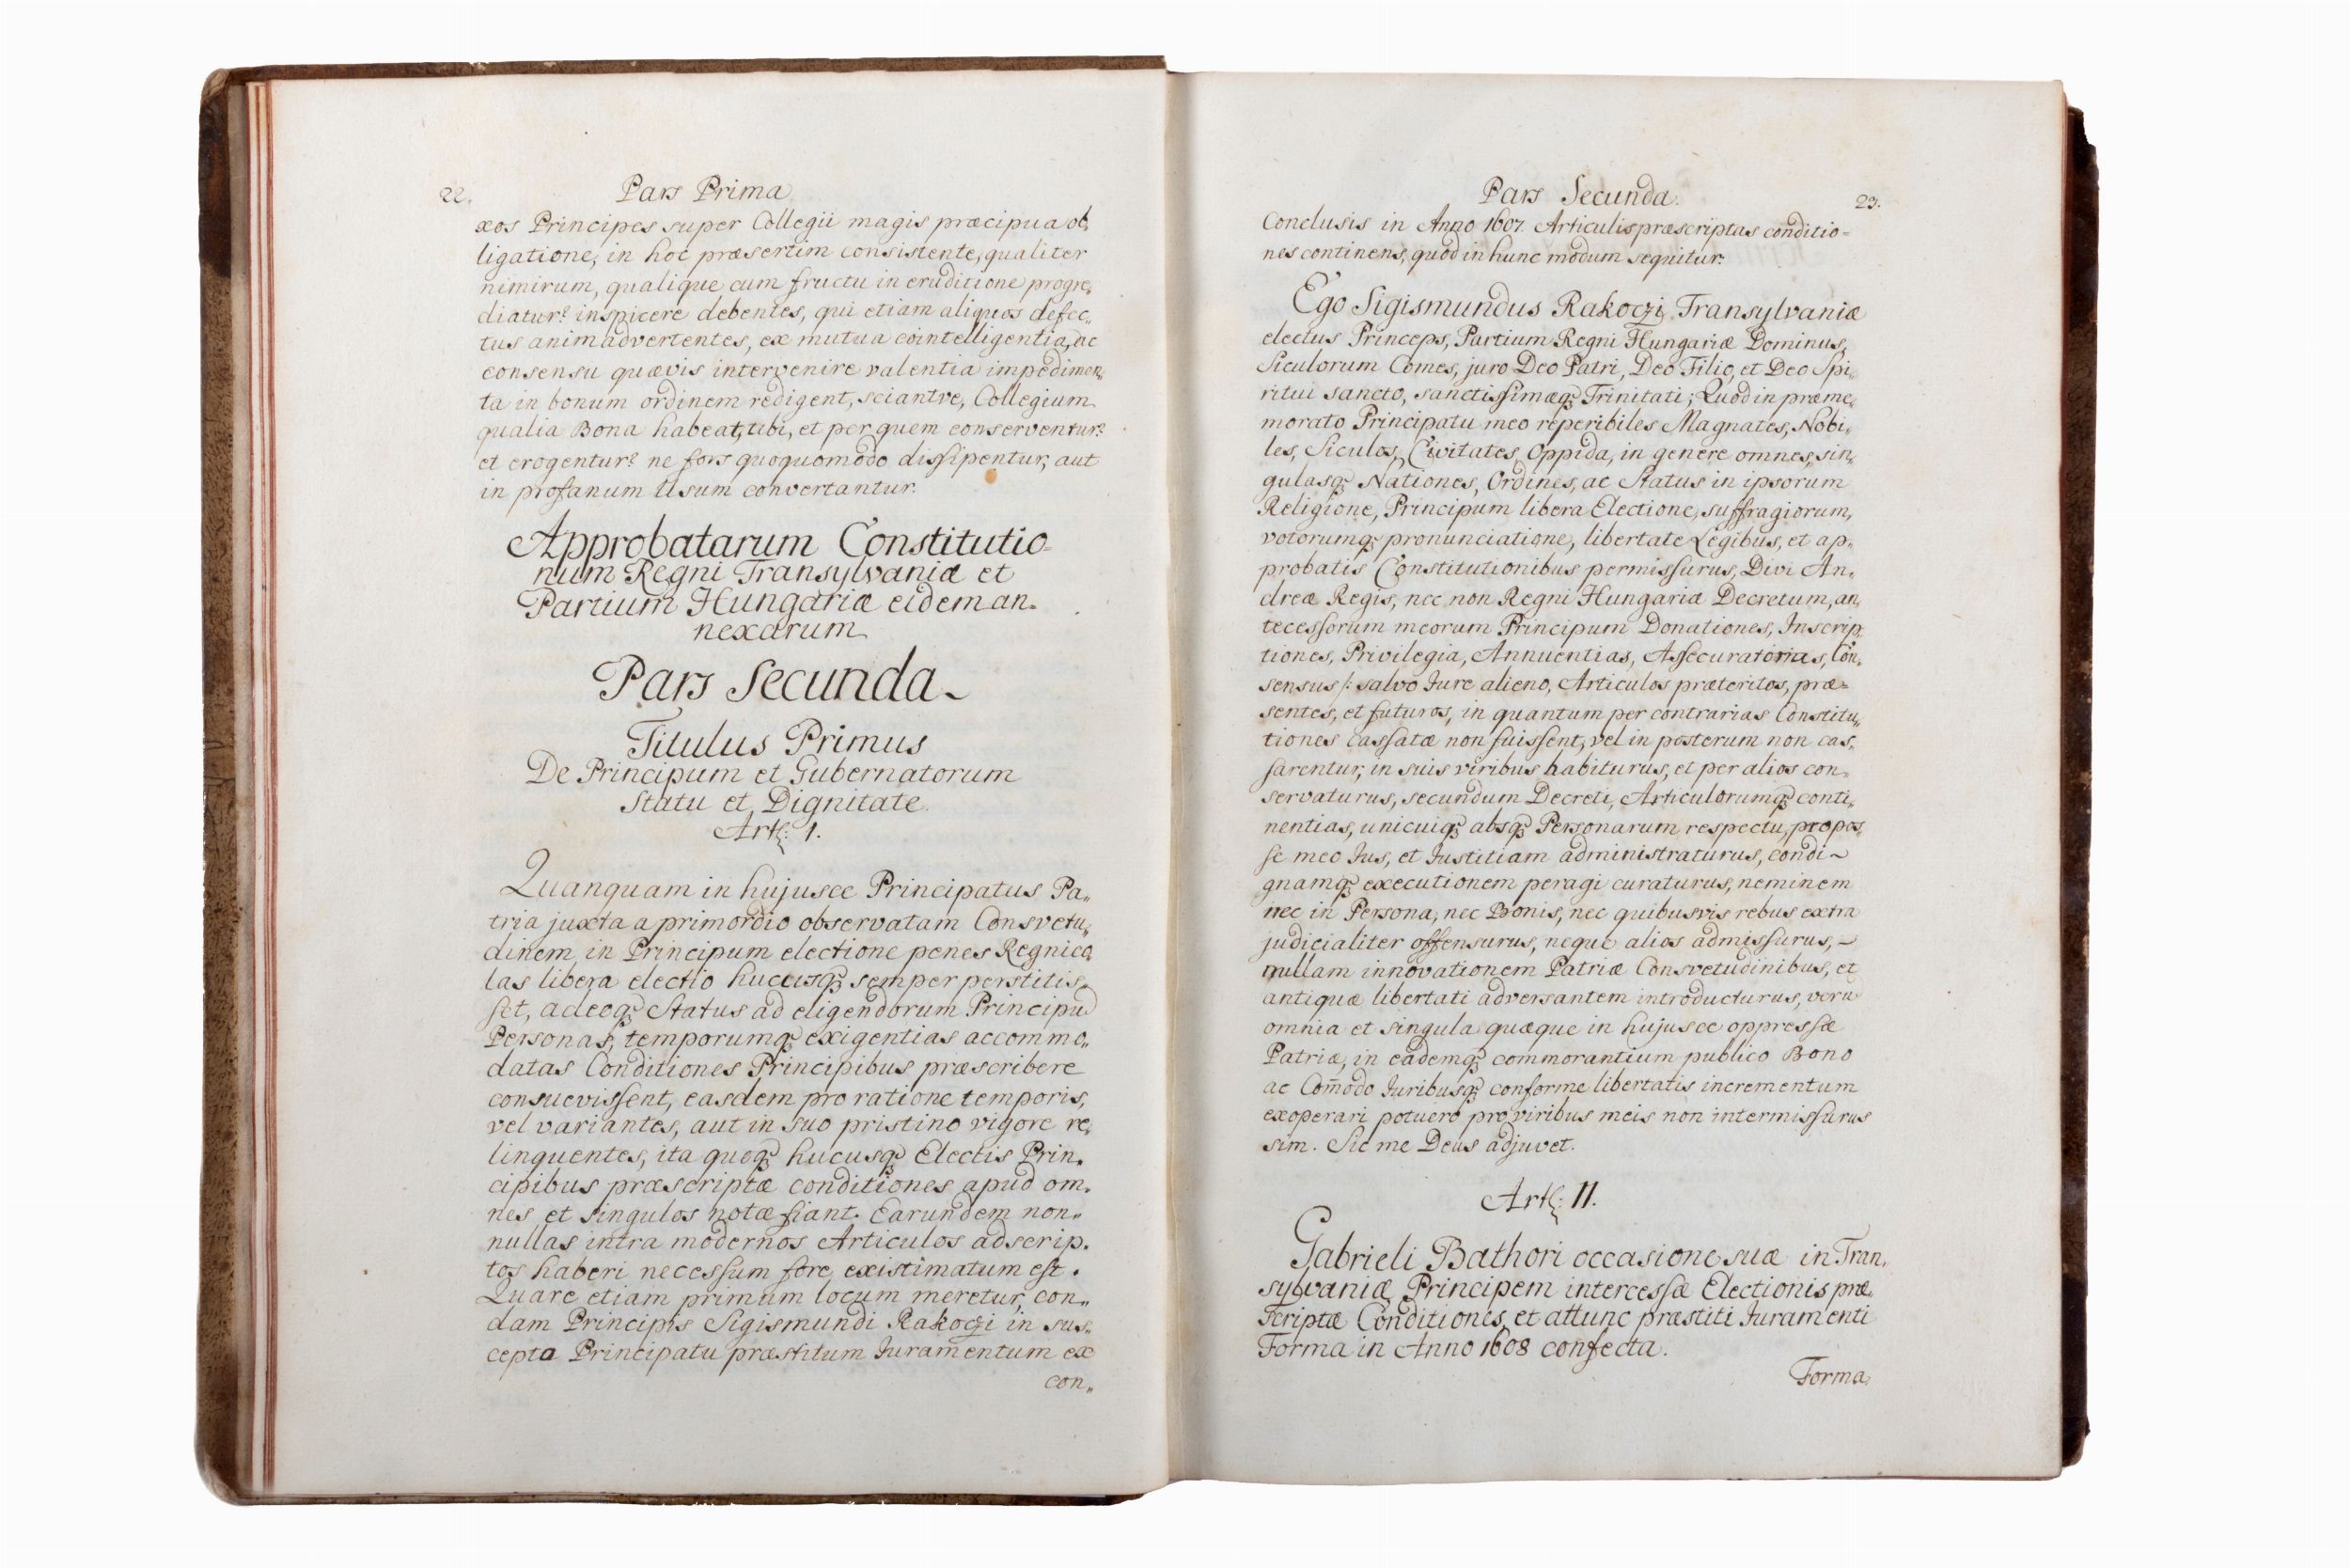 22.
Pars Prima
xos Principes super Collegii magis præcipua ob,
ligatione, in hoc præsertim consistente, qualiter
nimirum, qualique cum fructu in eruditione progre,
diatur? inspicere debentes, qui etiam aliquos defec,,
tus animadvertentes, ex mutua cointelligentia, ac
consensu quævis intervenire valentia impedimen,
ta in bonum ordinem redigent, sciantve, Collegium
qualia Bona habeat, ubi, et per quem conserventur?
et erogentur? ne fors quoquomodo dissipentur, aut
in profanum Usum convertantur.
Approbatarum Constitutio=
num Regni Transylvaniæ et
Partium Hungariæ eidem an-
nexarum
Pars Secunda~
Titulus Primus
De Principum et Gubernatorum
Statu et Dignitate.
Artl: 1.
Quanquam in hujusce Principatus Pa,,
tria juxta a primordio observatam Consvetu,
dinem in Principum electione penes Regnico,
las libera electio hucusq3 semper perstitis,
set, adeoq3 Status ad eligendorum Principū
Personas, temporumq3 exigentias accommo,,
datas Conditiones Principibus præscribere
consuevissent, easdem pro ratione temporis,
vel variantes, aut in suo pristino vigore re,
linquentes, ita quoq3 hucusq3 Electis Prin,
cipibus præscriptæ conditiones apud om,
nes et singulos notæ fiant. Earundem non,,
nullas intra modernos Articulos adscrip.
tos haberi necessum fore existimatum est.
Quare etiam primum locum meretur, con,,
dam Principis Sigismundi Rakoczi in sus,,
cepta Principatu præstitum Juramentum ex
con,,
Pars Secunda.
23.
Conclusis in Anno 1607. Articulis præscriptas conditio=
nes continens, quod in hunc modum sequitur:
Ego Sigismundus Rakoczi Transylvaniæ
electus Princeps, Partium Regni Hungariæ Dominus,
Siculorum Comes, juro Deo Patri, Deo Filio, et Deo Spi,
ritui sancto, sanctissimæq3 Trinitati; Quod in præme,
morato Principatu meo reperibiles Magnates, Nobi,
les, Siculos, Civitates, Oppida, in genere omnes, sin,
gulasq3 Nationes, Ordines, ac Status in ipsorum
Religione, Principum libera Electione, suffragiorum,
votorumq3 pronunciatione, libertate Legibus, et ap,
probatis Constitutionibus permissurus, Divi An,
dreæ Regis, nec non Regni Hungariæ Decretum, an,
tecessorum meorum Principum Donationes, Inscrip,
tiones, Privilegia, Annuentias, Assecuratorias, Con,
sensus /: salvo Jure alieno, Articulos præteritos, præ=
sentes, et futuros, in quantum per contrarias Constitu,,
tiones cassatæ non fuissent, vel in posterum non cas,
sarentur, in suis viribus habiturus, et per alios con,
servaturus, secundum Decreti, Articulorumq3 conti,
nentias, unicuiq3 absq3 Personarum respectu, propos,
se meo Jus, et Justitiam administraturus, condi~
gnamq3 executionem peragi curaturus, neminem
nec in Persona, nec Bonis, nec quibusvis rebus extra
judicialiter offensurus, neque alios admissurus, ~
nullam innovationem Patriæ Consvetudinibus, et
antiquæ libertati adversantem introducturus, verū
omnia et singula quæque in hujusce oppressæ
Patriæ, in eademq3 commorantium publico Bono
ac Com̄odo Juribusq3 conforme libertatis incrementum
exoperari potuero pro viribus meis non intermissurus
sim. Sic me Deus adjuvet.
Artl: II.
Gabrieli Bathori occasione suæ in Tran,
sylvaniæ Principem intercessæ Electionis præ,
scriptæ Conditiones, et attunc præstiti Juramenti
Forma in Anno 1608 confecta.
Forma